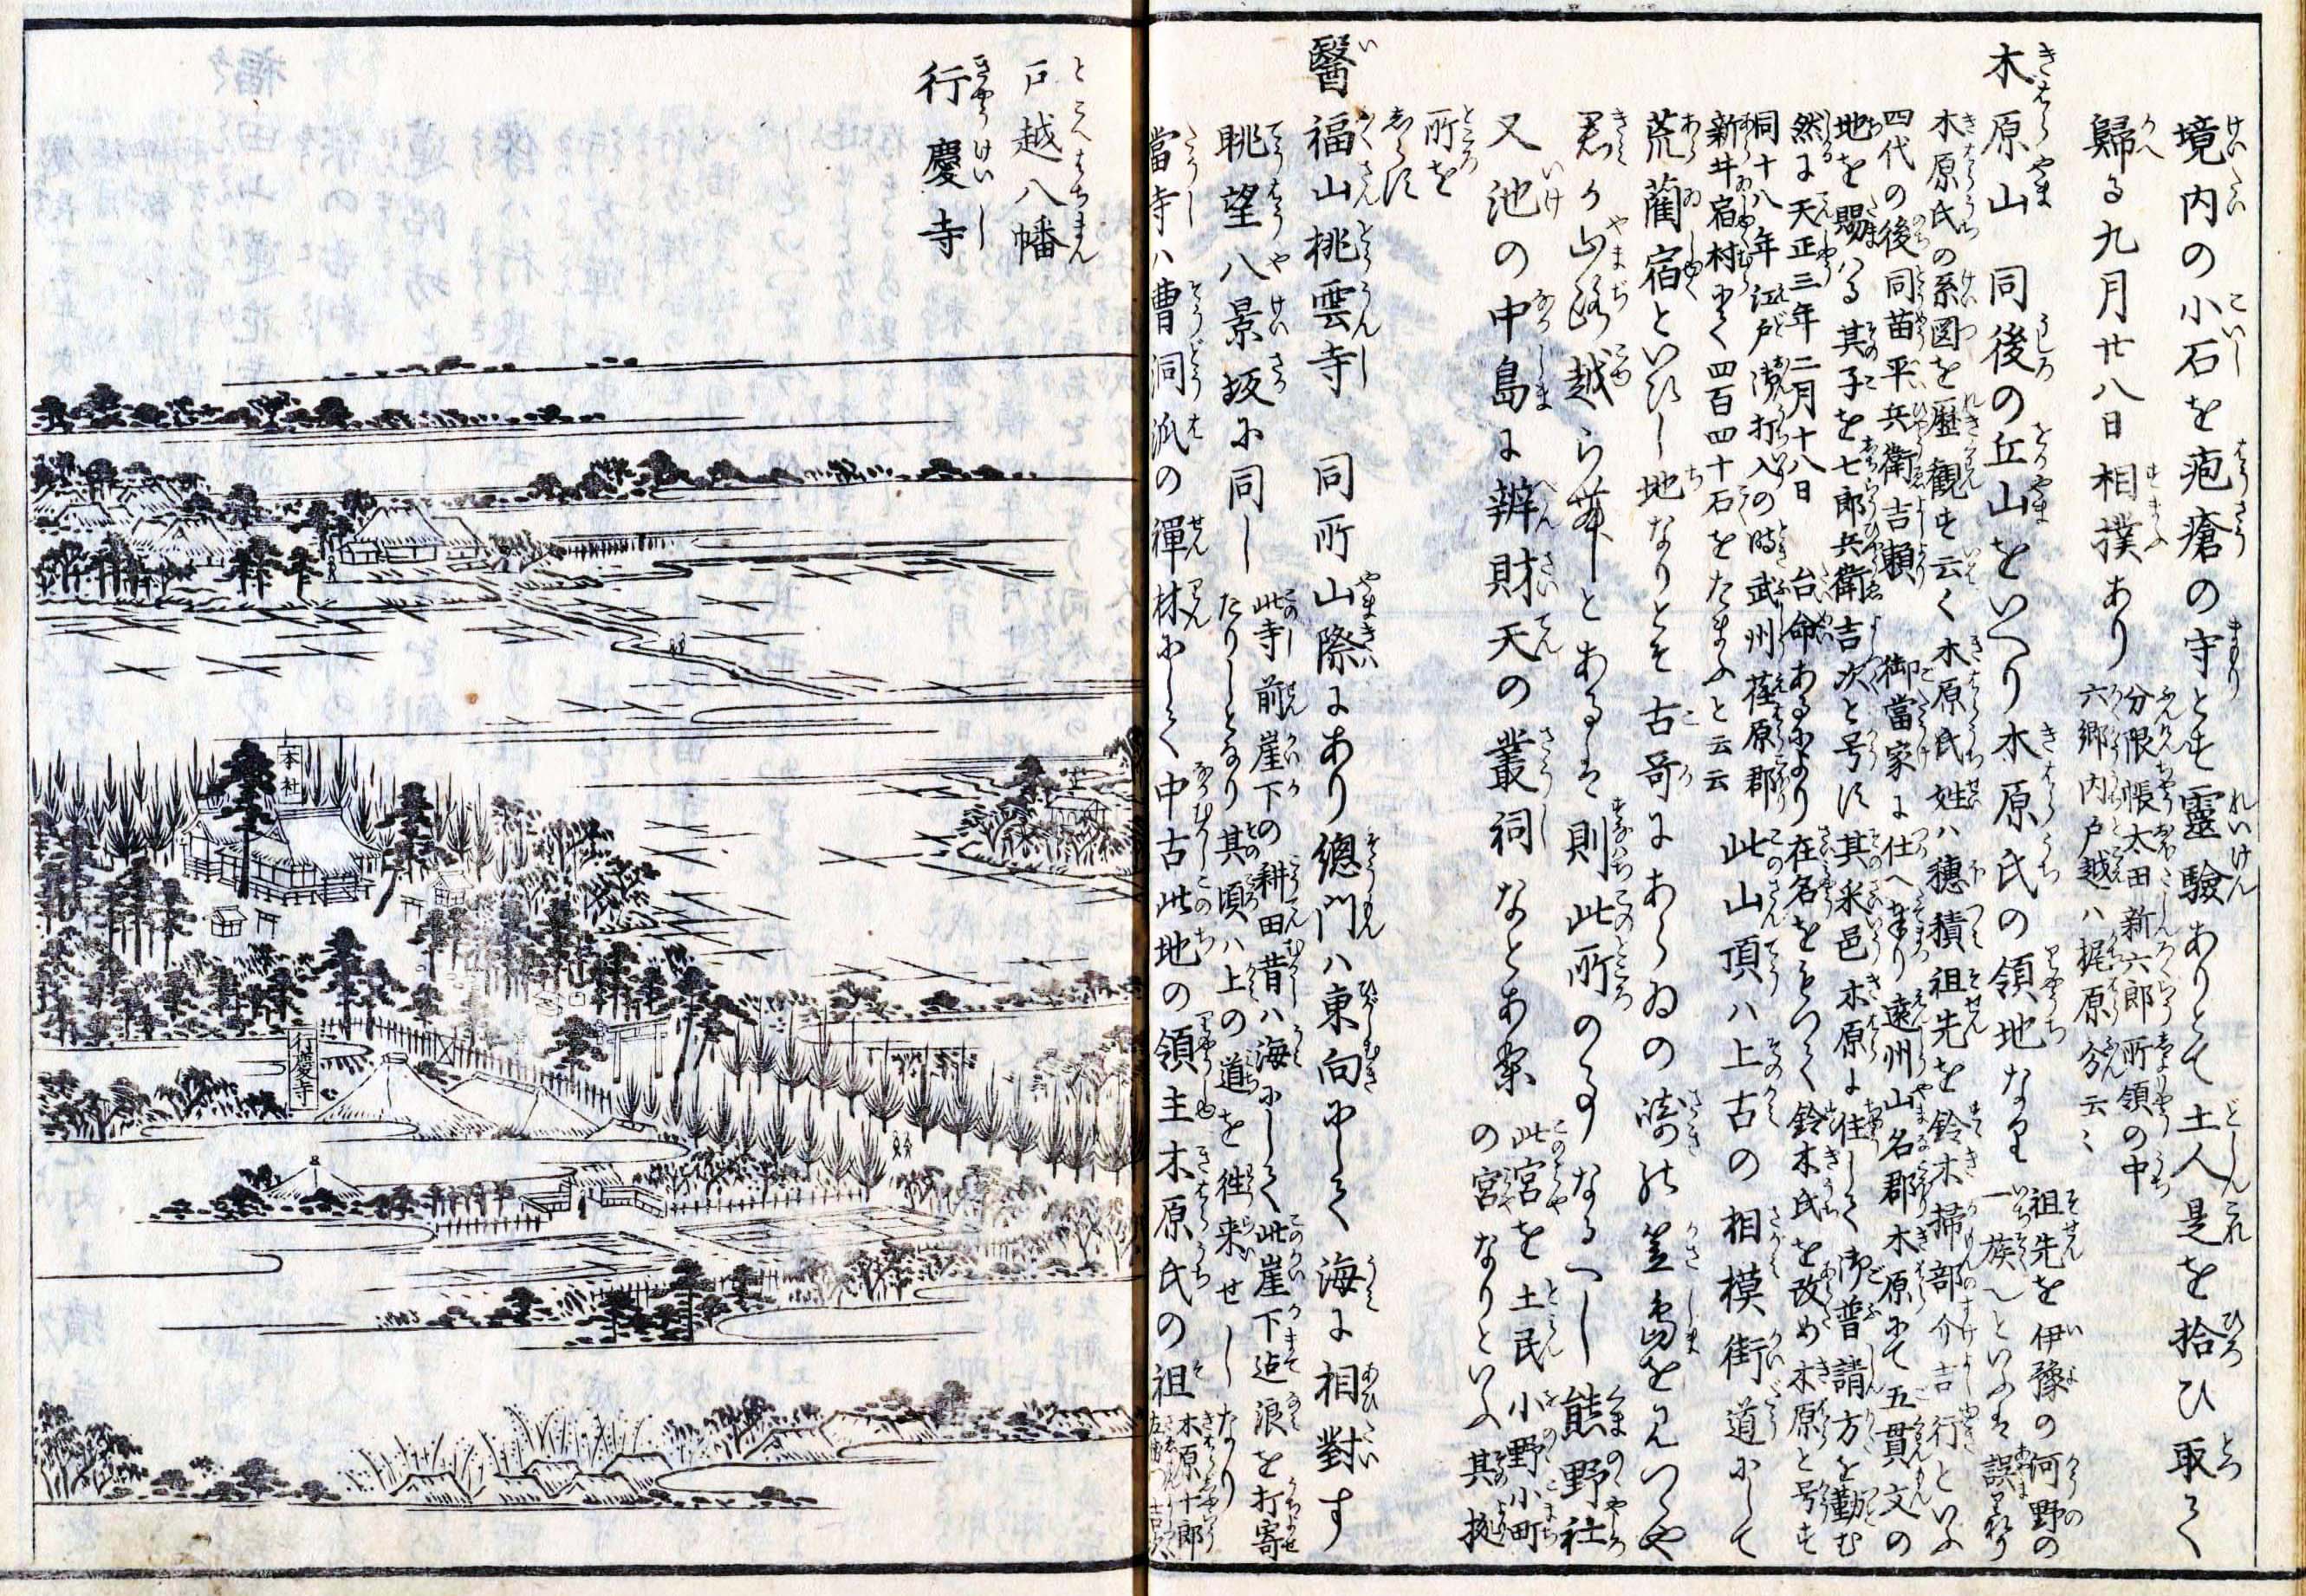 境内の小石を疱瘡の守とす霊験ありとて土人是を拾ひ取て
歸る九月廿八日相撲あり
分限帳太田新六郎所領の中
六郷内戸越八梶原分云々
木原山 同後の丘山をいへり木原氏の領地なり
祖先を伊豫の河野の
一族といふは誤なり
木原氏の系図を歴観す云く木原氏姓ハ穂積祖先を鈴木掃部介吉行といふ
四代の後同苗平兵衛吉頼 御當家に仕へ奉り遠州山名郡木原にて五貫文の
地を賜ハる其子を七郎兵衛吉次と号す其釆邑木原に住して御普請方を勤む
然に天正三年二月十八日 台命あるにより在名をもつて鈴木氏を改め木原と号す
同十八年江戸御打入の時武州荏原郡
新井宿村にて四百四十石をたまふと云云
此山頂ハ上古の相模街道にして
荒藺宿といひし地なりとそ古哥にあらゐの崎の笠島を見つつや
君か山路越らんとあるは則此所の事なるへし熊野社
又池の中島に辨財天の叢祠なとあり
此宮を土民小野小町
の宮なりといふ其拠
所を
しらす
醫福山桃雲寺 同所山際にあり總門ハ東向にして海に相對す
眺望八景坂に同し
此寺前崖下の耕田昔ハ海にして此崖下迄浪を打寄
たりしとなり其頃ハ上の道を往来せしなり
當寺ハ曹洞派の禪林にして中古此地の領主木原氏の祖
木原七郎
戸越八幡
行慶寺
本社
行慶寺